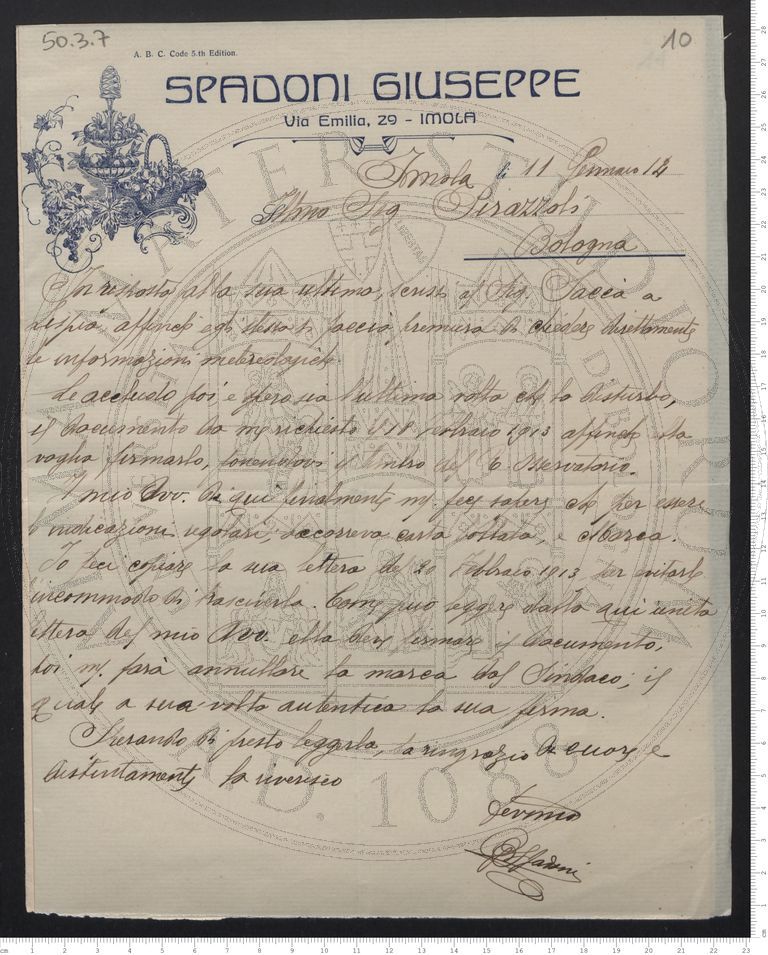 50.3.7
10
A. B. C. Code 5.th Edition.
SPADONI GIUSEPPE
Via Emilia, 29 - IMOLA
Imola li 11 Gennaio 14
Illmo Sig Pirazzoli
Bologna
In risposta alla sua ultima, scrissi al Sig. Taccà a
affinché egli stesso si faccia premura di chiedere direttamente
le informazioni metereologiche.
Le accludo poi e spero sia l'ultima volta che la disturbo,
il documento da me richiesto il 18 Febbraio 1913 affinché Ella
voglia firmarlo, il timbro del O Osservatorio.
Il mio Avv. di qui finalmente mi fece sapere che per essere
indicazioni regolari, occorreva carta bollata, e Marca.
Io feci copiare la sua lettera del 20 Febbraio 1913 per evitarle
l'incommodo di trascriverla. Come può leggere dalla qui unita
lettera del mio Avv. ella deve firmare il documento,
poi mi farà annullare la marca dal Sindaco; il
quale a sua volta autentica la sua firma.
Sperando di presto leggerla, la ringrazio di cuore e
distintamente la riverisco
Devmo
GSpadoni
A.D. 1088